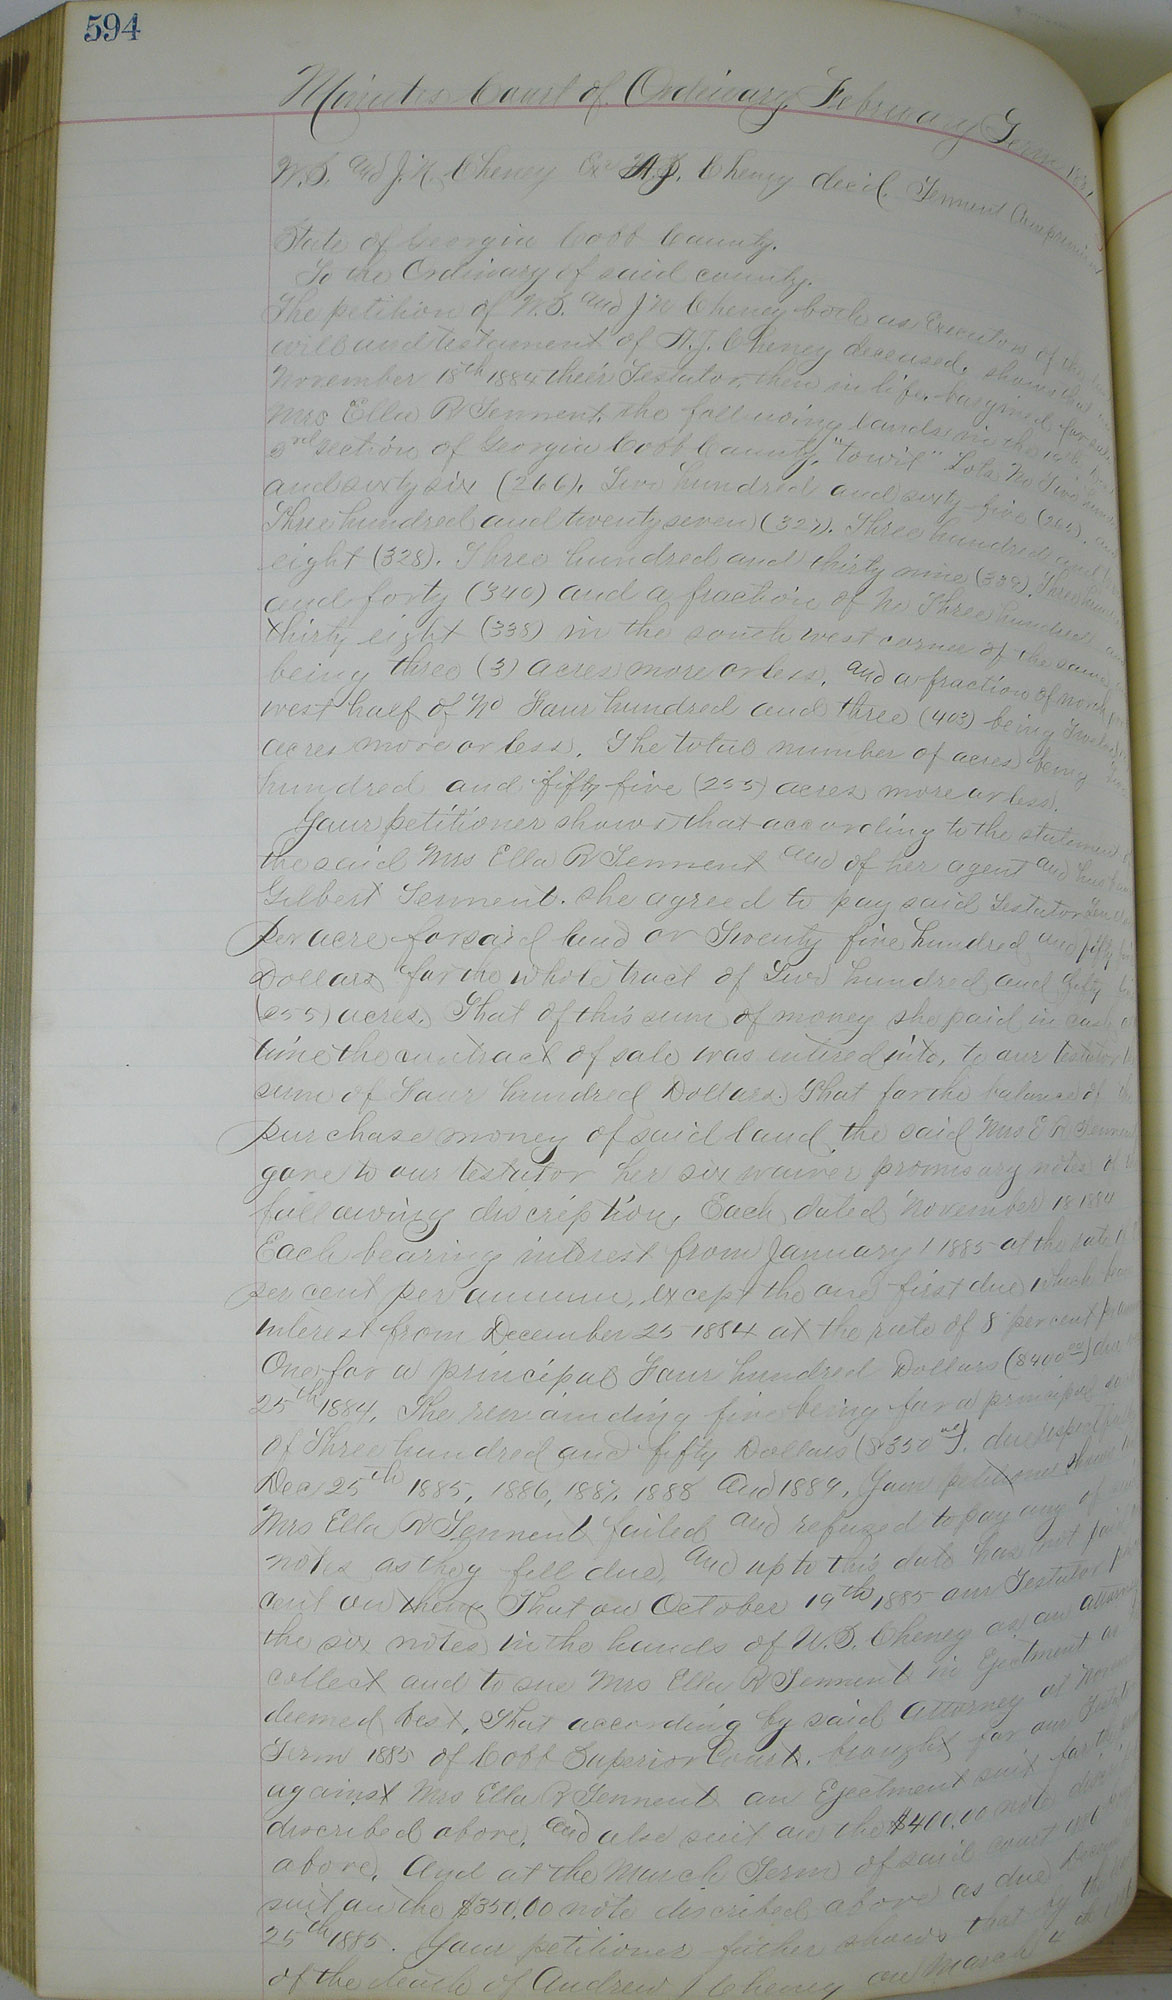 594
Minutes Court of Ordinary, February Term 188
W.S. and J.N. Cheney Exr A.J. Cheney decd. Tennent
State of Georgia Cobb County.
To the Ordinary of said county.
The petition of W.S. and J N Cheney both as Executors of the
will and testament of A.J. Cheney deceased, shows that
November 18th 1884 their Testator, then in life, bargained for
Mrs Ella R Tennent, the following lands in the 19th
2nd section of Georgia Cobb County, "towit" Lots No Two
and sixty six (266), Two hundred and sixty five (265), and
Three hundred and twenty seven (327). Three hundred and
eight (328). Three hundred and thirty nine (339). Three hundred
and forty (340) and a fraction of No Three hundred and
thirty eight (338) in the south west corner of the same
being three (3) acres more or less, and a fraction of north
west half of No Four hundred and three (403) being Twelve
acres more or less. The total number of acres being Two
hundred and fifty five (255) acres more or less.
Your petitioner shows that according to the statement
the said Mrs Ella R Tennent and of her agent and husband
Gilbert Tennent. she agreed to pay said Testator Ten
per acre for said land or Twenty five hundred and fifty
Dollars for the whole tract of Two hundred and fifty
(255) acres. That of this sum of money she paid in cash
time the contract of sale was entired into, to our testator
sum of Four hundred Dollars. That for the balance of the
purchase money of said land the said Mrs E R Tennent
gave to our testator her six waiver promisary notes of
following discription, Each dated November 18 1884
Each bearing interest from January 1 1885 at the rate of
per cent per annum, except the one first due which
interest from December 25 1884 at the rate of 8 per cent per
One for a principal Four hundred Dollars ($400.00) due
25th 1884. The remainding five being for a principal
of Three hundred and fifty Dollars ($350.00), due respectively
Dec 25th 1885, 1886, 1887, 1888 and 1889. Your petitioner shows
Mrs Ella R Tennent failed and refused to pay any of
notes as they fell due, and up to this date has not paid
cent on them That on October 19th 1885 our Testator
the six notes in the hands of W.S. Cheney as an attorney
collect and to sue Mrs Ella R Tennent in Ejectment as
deemed best, That according by said Attorney at
Term 1885 of Cobb Superior Court, brought for our Testator
against Mrs Ella R Tennent an Ejectment suit for the
discribed above, and also suit on the $400.00 note
above, And at the March Term of said court
suit on the $350.00 note discribed above as due
25th 1885. Your petitioner futher shows that by
of the death of Andrew J Cheney on March 4th